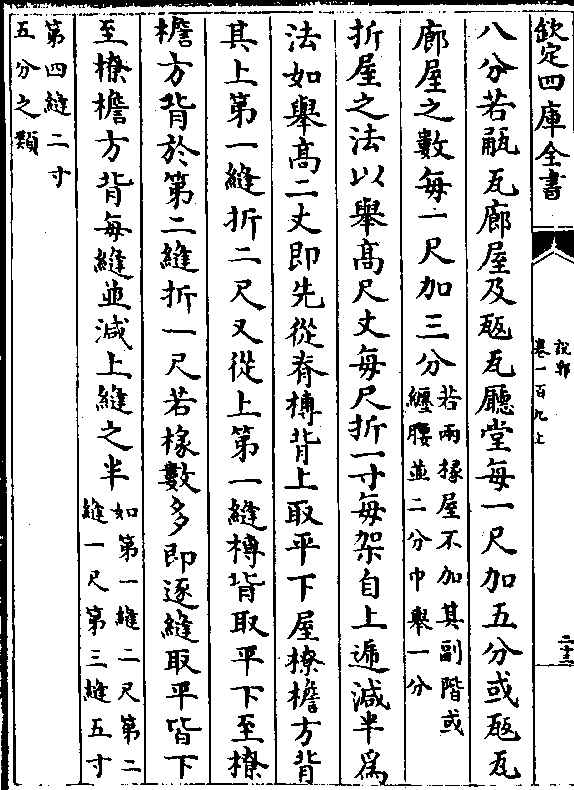 欽定四庫全書
說郛
卷一百九上
二十三
八分若㼧瓦廊屋及瓪瓦廳堂每一尺加五分或瓪瓦
廊屋之數每一尺加三分若兩椽屋不加其副階或
纏腰並二分巾舉一分
折屋之法以舉髙尺丈每尺折一寸每架自上遞減半爲
法如舉髙二丈即先從脊槫背上取平下屋橑檐方背
其上第一縫折二尺又從上第一縫槫背取平下至橑
檐方背於第二縫折一尺若椽數多即逐縫取平皆下
至橑檐方背每縫並減上縫之半如第一縫二尺第二
縫一尺第三縫五寸
第四縫二寸
五分之類